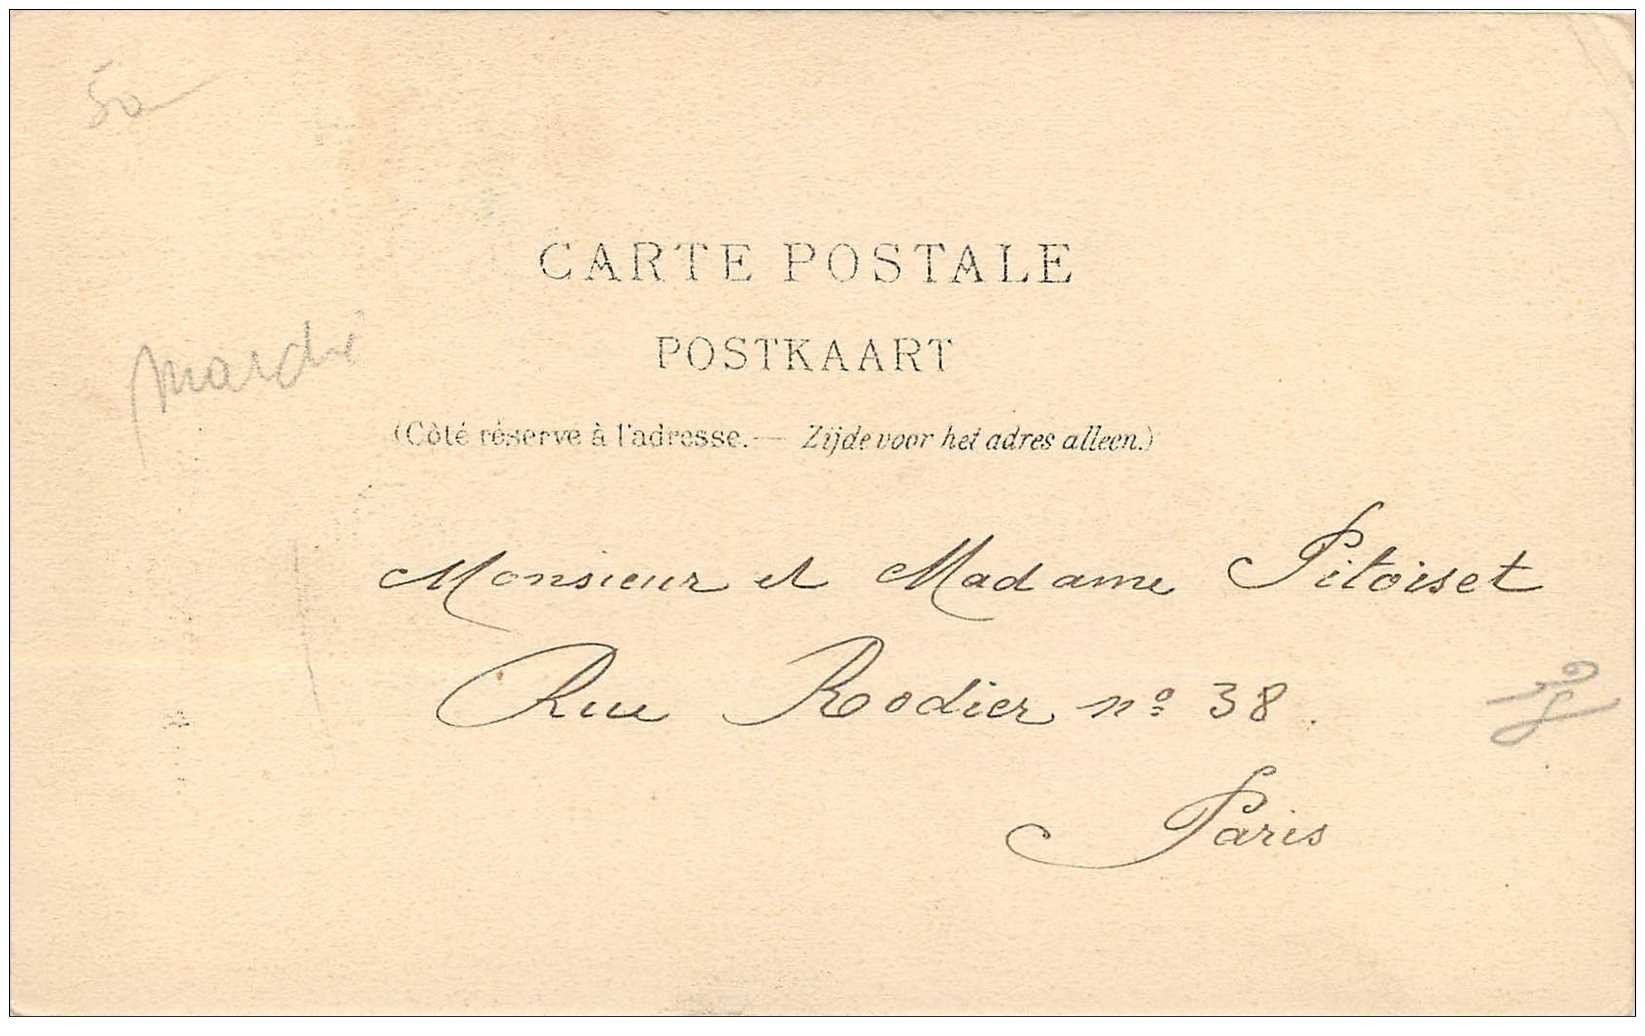 50
CARTE POSTALE
POSTKAART
marché
(Côté réservé à l'adresse. — Zijde voor het adres alleen.)
Monsieur et Madame Pitoiset
Rue Rodier nº 38.
Paris